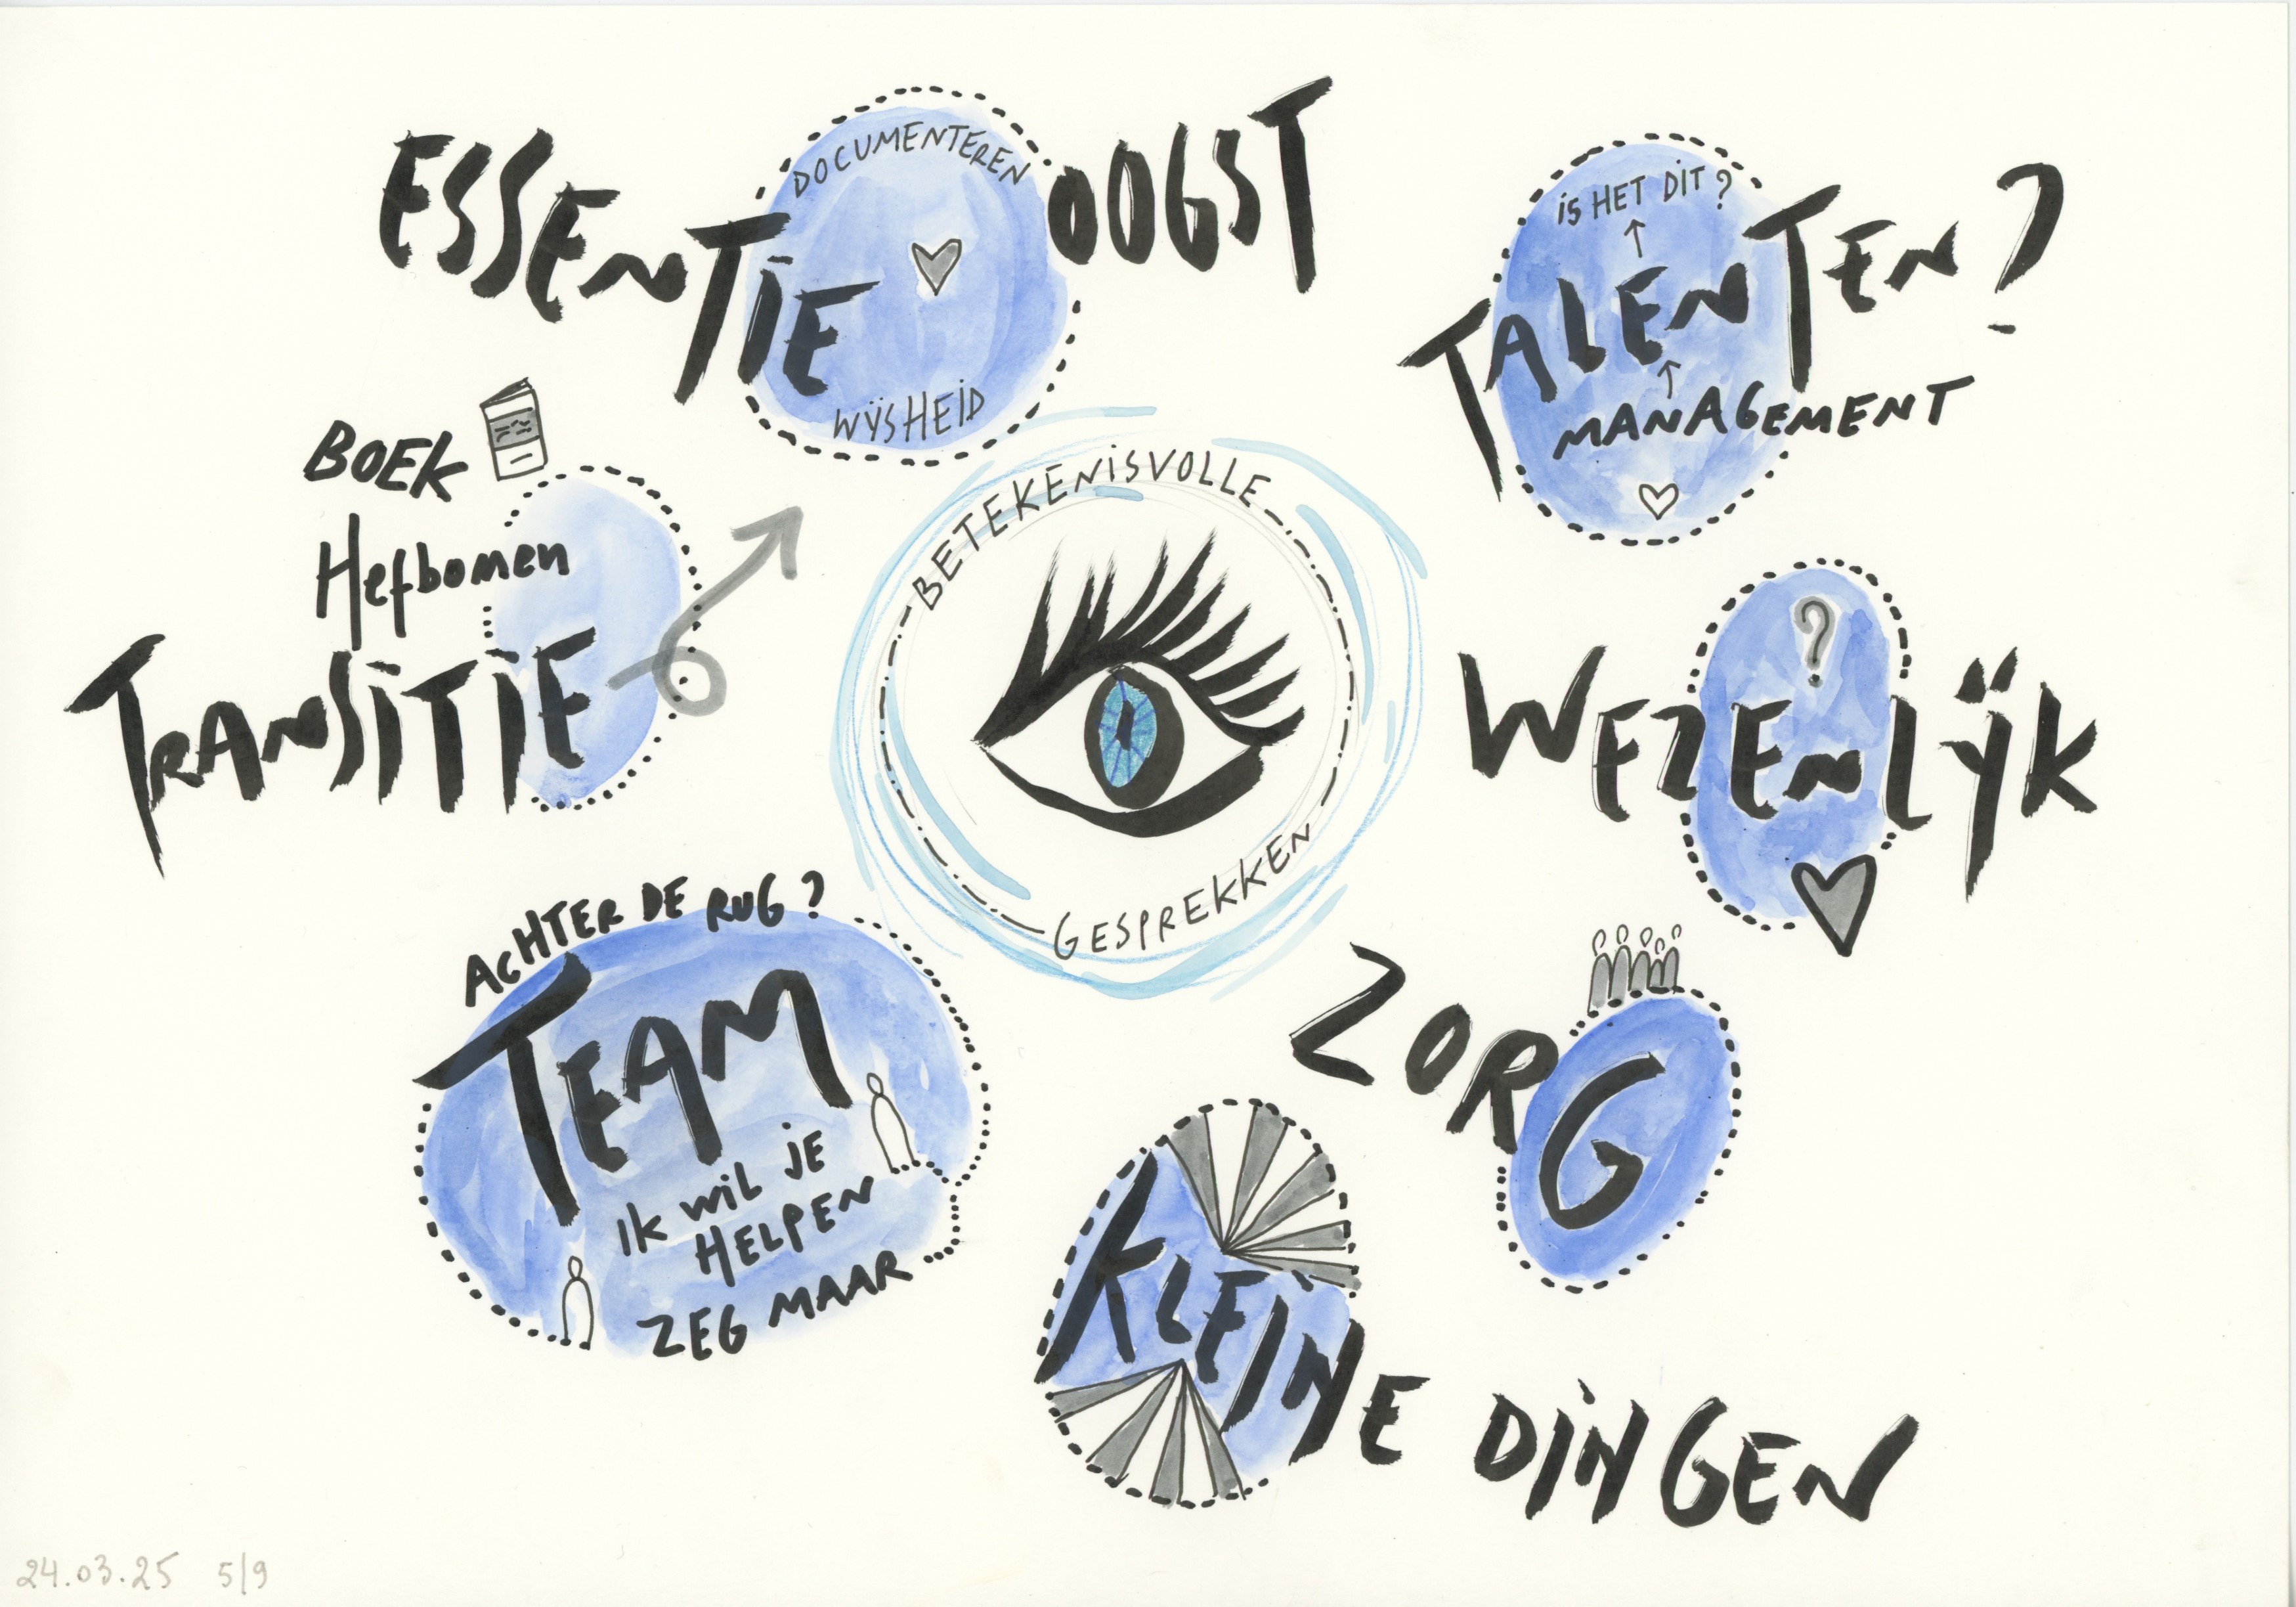 ESSENTIE OOGST
DOCUMENTEREN
WIJSHEID
IS HET DIT?
TALENTEN?
MANAGEMENT
BOEK
Hefbomen
TRANSITIE
BETEKENISVOLLE
GESPREKKEN
?
WEZENLIJK
ACHTER DE RUG?
TEAM
IK WIL JE
HELPEN
ZEG MAAR
ZORG
KLEINE DINGEN
24.03.25 5/9